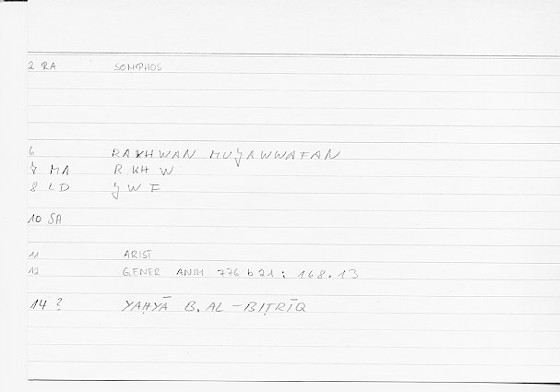 2 RA SOMPHOS
6 RAKHWAN MUǦAWWAFAN
7 MA R KH W
8 LD Ǧ W F
10 SA
11 ARIST
12 GENER ANIM 776 b 21 : 168.13
14 ? YAḤYĀ B. AL-BIṬRĪQ